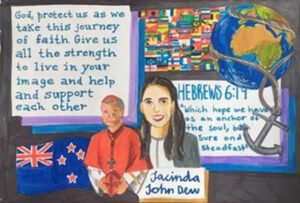 God, protect us as we
take this journey
of faith. Give us
all the strength
to live in your
image and help
and support
each other
HEBREWS 6:19
"Which hope we have
as an anchor of
the soul, both
Sure and
Steadfast"
Jacinda
John Dew